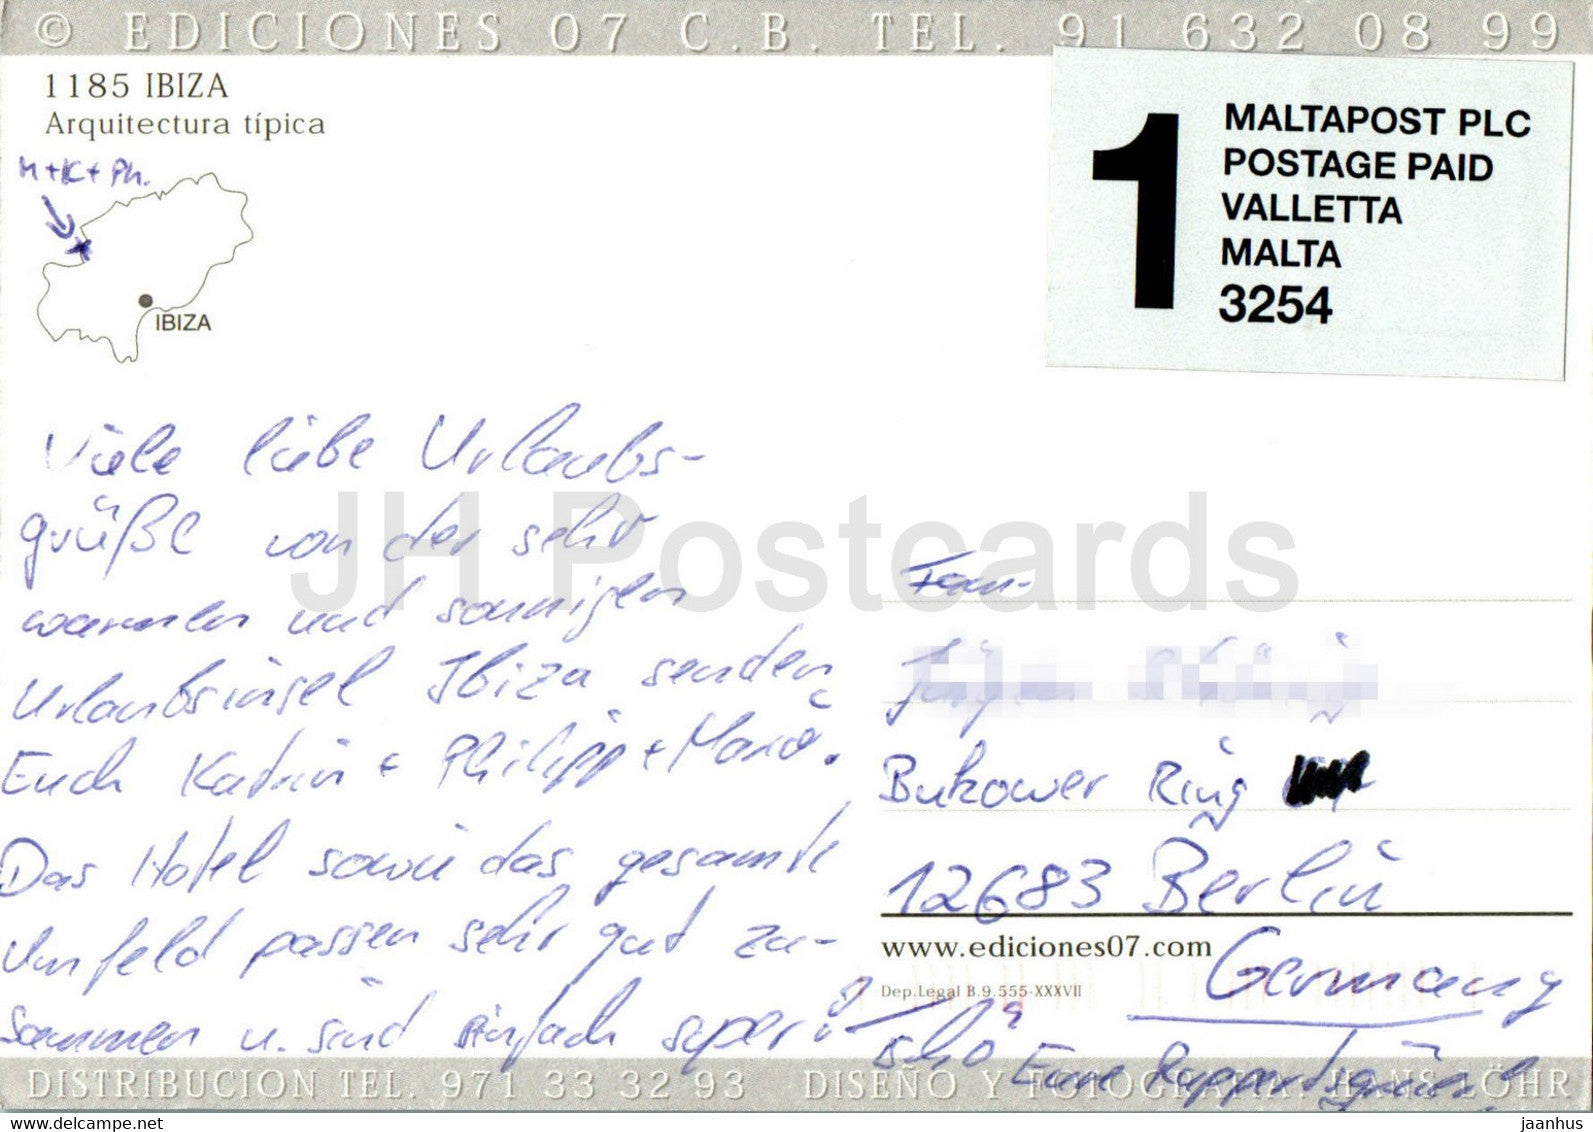 © EDICIONES 07 C.B. TEL. 91 632 08 99
1185 IBIZA
Arquitectura típica
M+K+Ph.
IBIZA
1
MALTAPOST PLC
POSTAGE PAID
VALLETTA
MALTA
3254
Viele liebe Urlaubs-
grüße von der sehr
warmen und sonnigen
Urlaubsinsel Ibiza senden
Euch Katrin + Philipp + Mario.
Das Hotel sowie das gesamte
Umfeld passen sehr gut zu-
sammen u. sind einfach super!
Fam.
Bukower Ring
12683 Berlin
Germany
www.ediciones07.com
Dep.Legal B.9.555-XXXVII
Eure
DISTRIBUCION TEL. 971 33 32 93 DISEÑO Y FOTOGRAFIA: HANS LÖHR
JH Postcards
www.delcampe.net
jaanhus